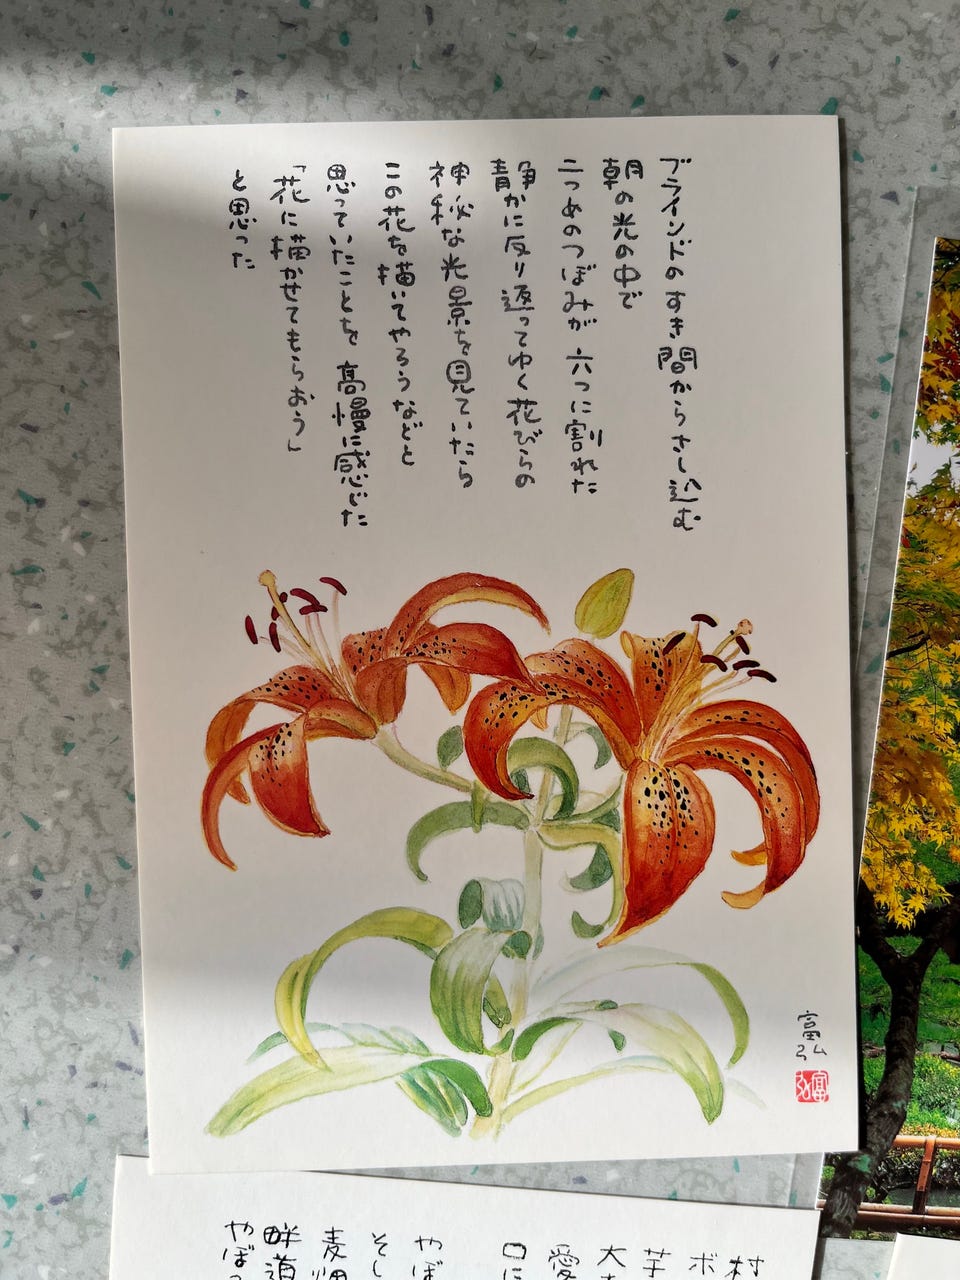 ブラインドのすき間からさし込む
朝の光の中で
二つめのつぼみが 六つに割れた
静かに反り返ってゆく花びらの
神秘な光景を見ていたら
この花を描いてやろうなどと
思っていたことを 高慢に感じた
「花に描かせてもらおう」
と思った
富弘
富弘
村
ボ
芋
大
愛
口に
やぼ
そし
麦畑
畔道
やぼっ